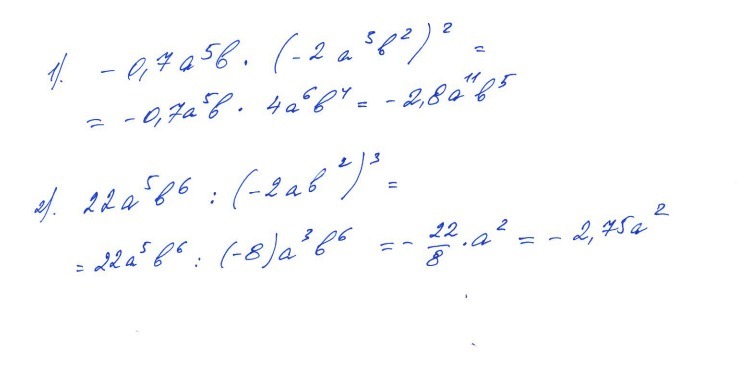 1). - 0,7a⁵b · (-2a³b²)² =
= - 0,7a⁵b · 4a⁶b⁴ = - 2,8a¹¹b⁵
2). 22a⁵b⁶ : (-2ab²)³ =
= 22a⁵b⁶ : (-8)a³b⁶ = - 22/8 · a² = - 2,75a²